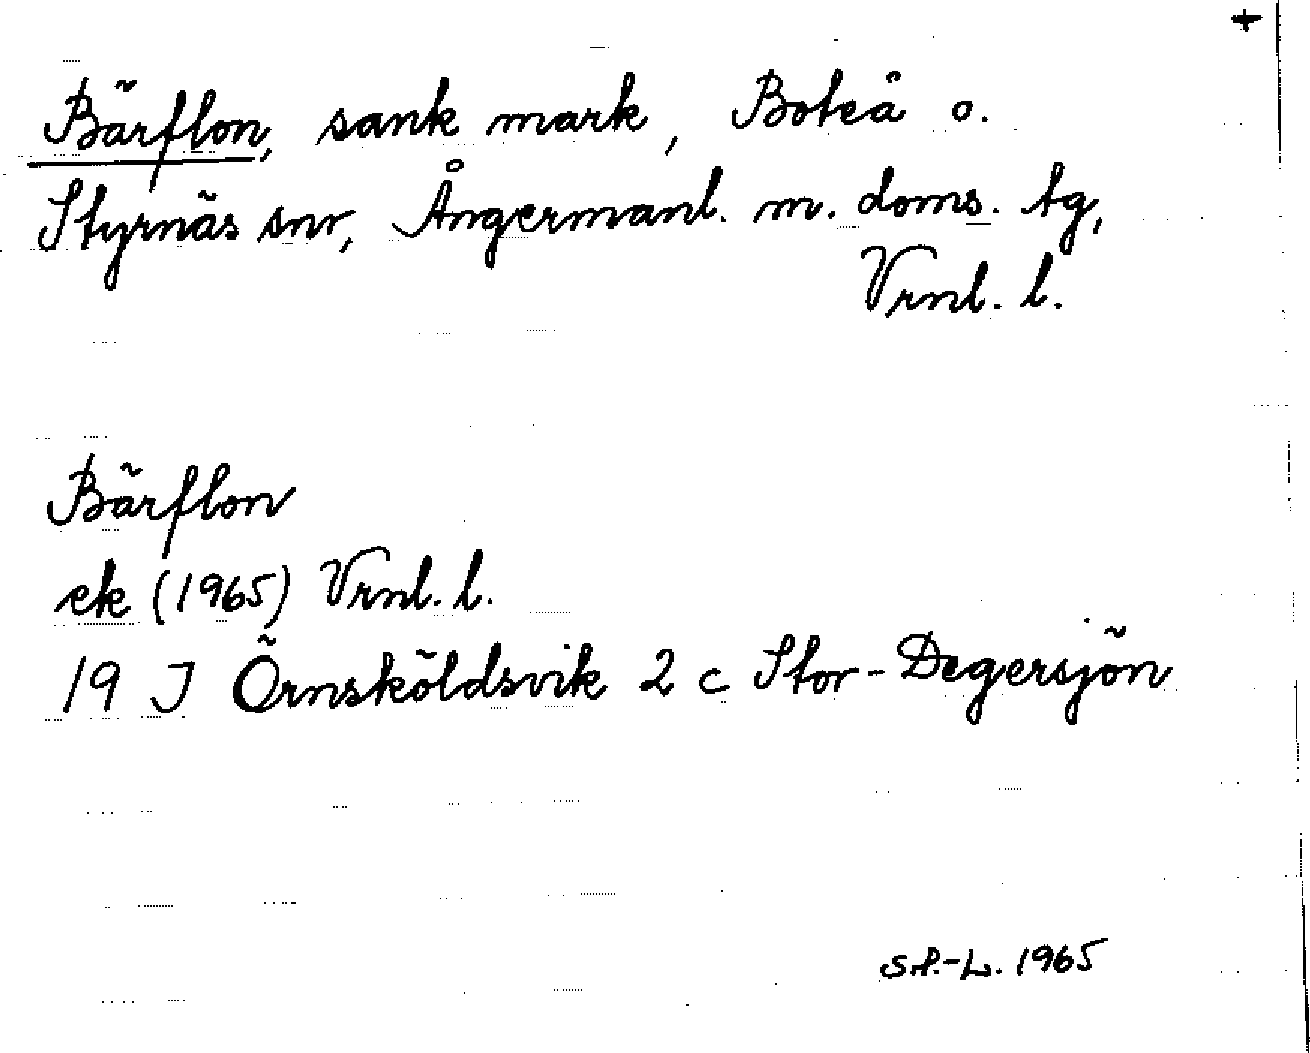 +
Bärflon, sank mark, Boteå o.
Styrnäs snr, Ångermanl. m. doms. tg,
Vrnl. l.
Bärflon
ek (1965) Vrnl. l.
19 J Örnsköldsvik 2 c Stor-Degersjön
S.P.-L. 1965